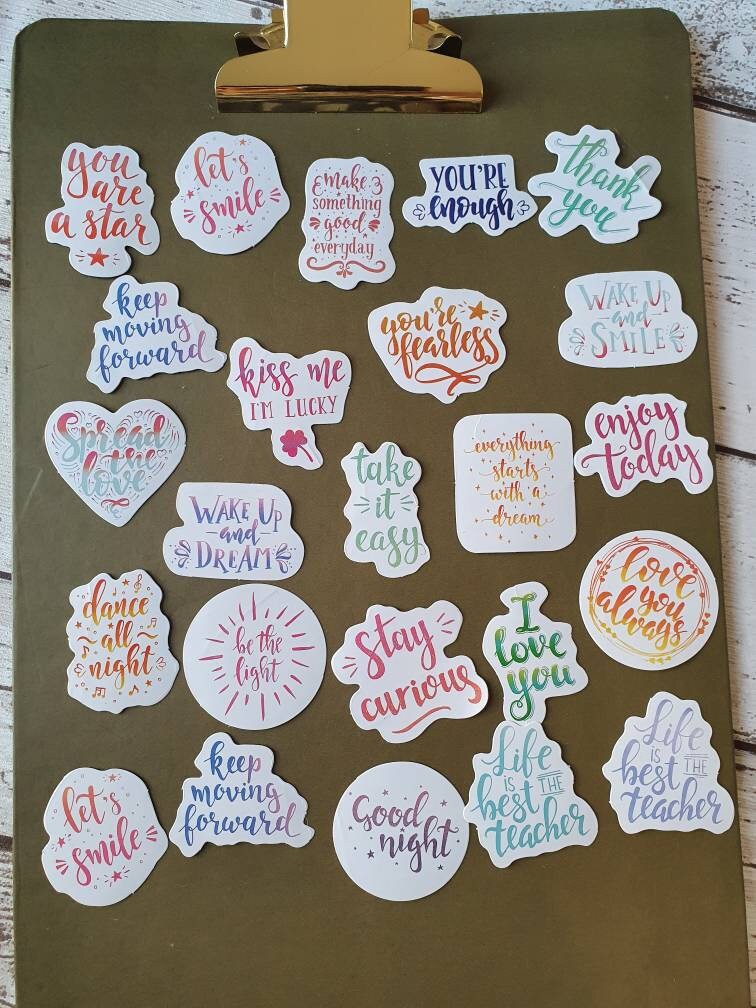 you
are
a star
let's
smile
make
something
good
everyday
YOU'RE
enough
thank
you
keep
moving
forward
kiss me
I'M LUCKY
you're
fearless
WAKE UP
and
SMILE
Spread
the
love
WAKE UP
and
DREAM
take
it
easy
everything
starts
with a
dream
enjoy
today
dance
all
night
be the
light
stay
curious
I
love
you
love
you
always
let's
smile
keep
moving
forward
Good
night
Life
IS THE
best
teacher
Life
IS THE
best
teacher